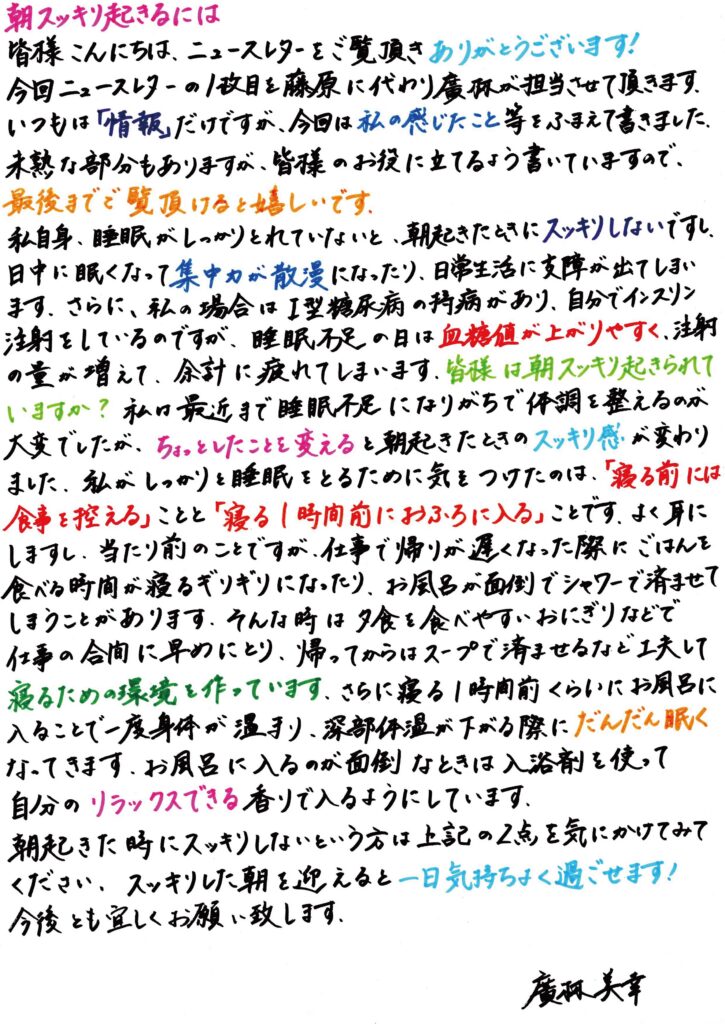 朝スッキリ起きるには
皆様こんにちは、ニュースレターをご覧頂きありがとうございます!
今回ニュースレターの1枚目を藤原に代わり廣林が担当させて頂きます。
いつもは「情報」だけですが、今回は私の感じたこと等をふまえて書きました。
未熟な部分もありますが、皆様のお役に立てるよう書いていますので、
最後までご覧頂けると嬉しいです。
私自身、睡眠がしっかりとれていないと、朝起きたときにスッキリしないですし、
日中に眠くなって集中力が散漫になったり、日常生活に支障が出てしまい
ます。さらに、私の場合はI型糖尿病の持病があり、自分でインスリン
注射をしているのですが、睡眠不足の日は血糖値が上がりやすく、注射
の量が増えて、余計に疲れてしまいます。皆様は朝スッキリ起きられて
いますか?私は最近まで睡眠不足になりがちで体調を整えるのが
大変でしたが、ちょっとしたことを変えると朝起きたときのスッキリ感が変わり
ました。私がしっかりと睡眠をとるために気をつけたのは、「寝る前には
食事を控える」ことと「寝る1時間前におふろに入る」ことです。よく耳に
しますし、当たり前のことですが、仕事で帰りが遅くなった際にごはんを
食べる時間が寝るギリギリになったり、お風呂が面倒でシャワーで済ませて
しまうことがあります。そんな時は夕食を食べやすいおにぎりなどで
仕事の合間に早めにとり、帰ってからはスープで済ませるなど工夫して
寝るための環境を作っています。さらに寝る1時間前くらいにお風呂に
入ることで一度身体が温まり、深部体温が下がる際にだんだん眠く
なってきます。お風呂に入るのが面倒なときは入浴剤を使って
自分のリラックスできる香りで入るようにしています。
朝起きた時にスッキリしないという方は上記の2点を気にかけてみて
ください。スッキリした朝を迎えると一日気持ちよく過ごせます!
今後とも宜しくお願い致します。
廣林美幸